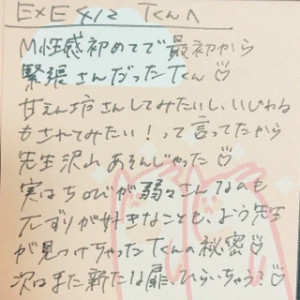 EXE 4/2 Tくんへ
M性感初めてで最初から
緊張さんだったTくん♡
甘えん坊さんしてみたいし、いじわる
もされてみたい!って言ってたから
先生沢山あそんじゃった♡
実はちOびが弱々さんなのも
ズリが好きなことも、よう先生
が見つけちゃったTくんの秘密♡
次はまた新たな扉、ひらいちゃう?♡